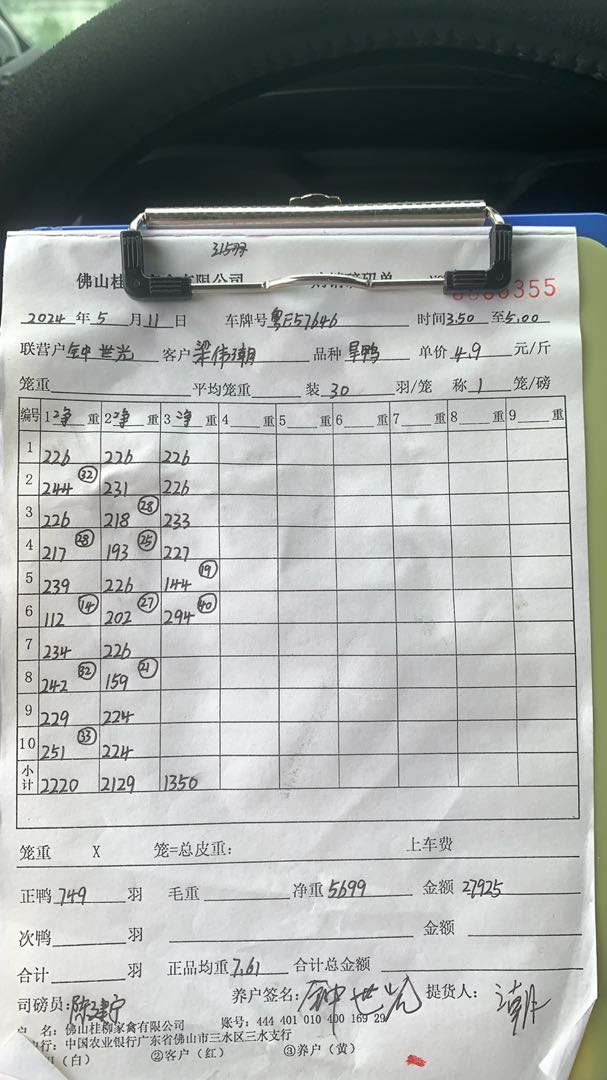 315羽
佛山桂柳家禽有限公司
0000355
2024 年 5 月 11 日 车牌号 粤E57646 时间 3.50 至 5.00
联营户 钟世光 客户 梁伟潮 品种 旱鸭 单价 4.9 元/斤
笼重 平均笼重 装 30 羽/笼 称 1 笼/磅
编号 1 净 重 2 净 重 3 净 重 4 重 5 重 6 重 7 重 8 重 9 重
1 226 226 226
2 244 ㉜ 231 226
3 226 218 ㉘ 233
4 217 ㉘ 193 ㉕ 227
5 239 226 144 ⑲
6 112 ⑭ 202 ㉗ 294 ㊵
7 234 226
8 242 ㉜ 159 ㉑
9 229 224
10 251 ㉝ 224
小计 2220 2129 1350
笼重 X 笼=总皮重： 上车费
正鸭 749 羽 毛重 净重 5699 金额 27925
次鸭 羽 金额
合计 羽 正品均重 7.61 合计总金额
司磅员： 养户签名：钟世光 提货人：潮
户 名：佛山桂柳家禽有限公司 账号：444 401 010 400 169 29
行：中国农业银行广东省佛山市三水区三水支行
（白） ②客户（红） ③养户（黄）